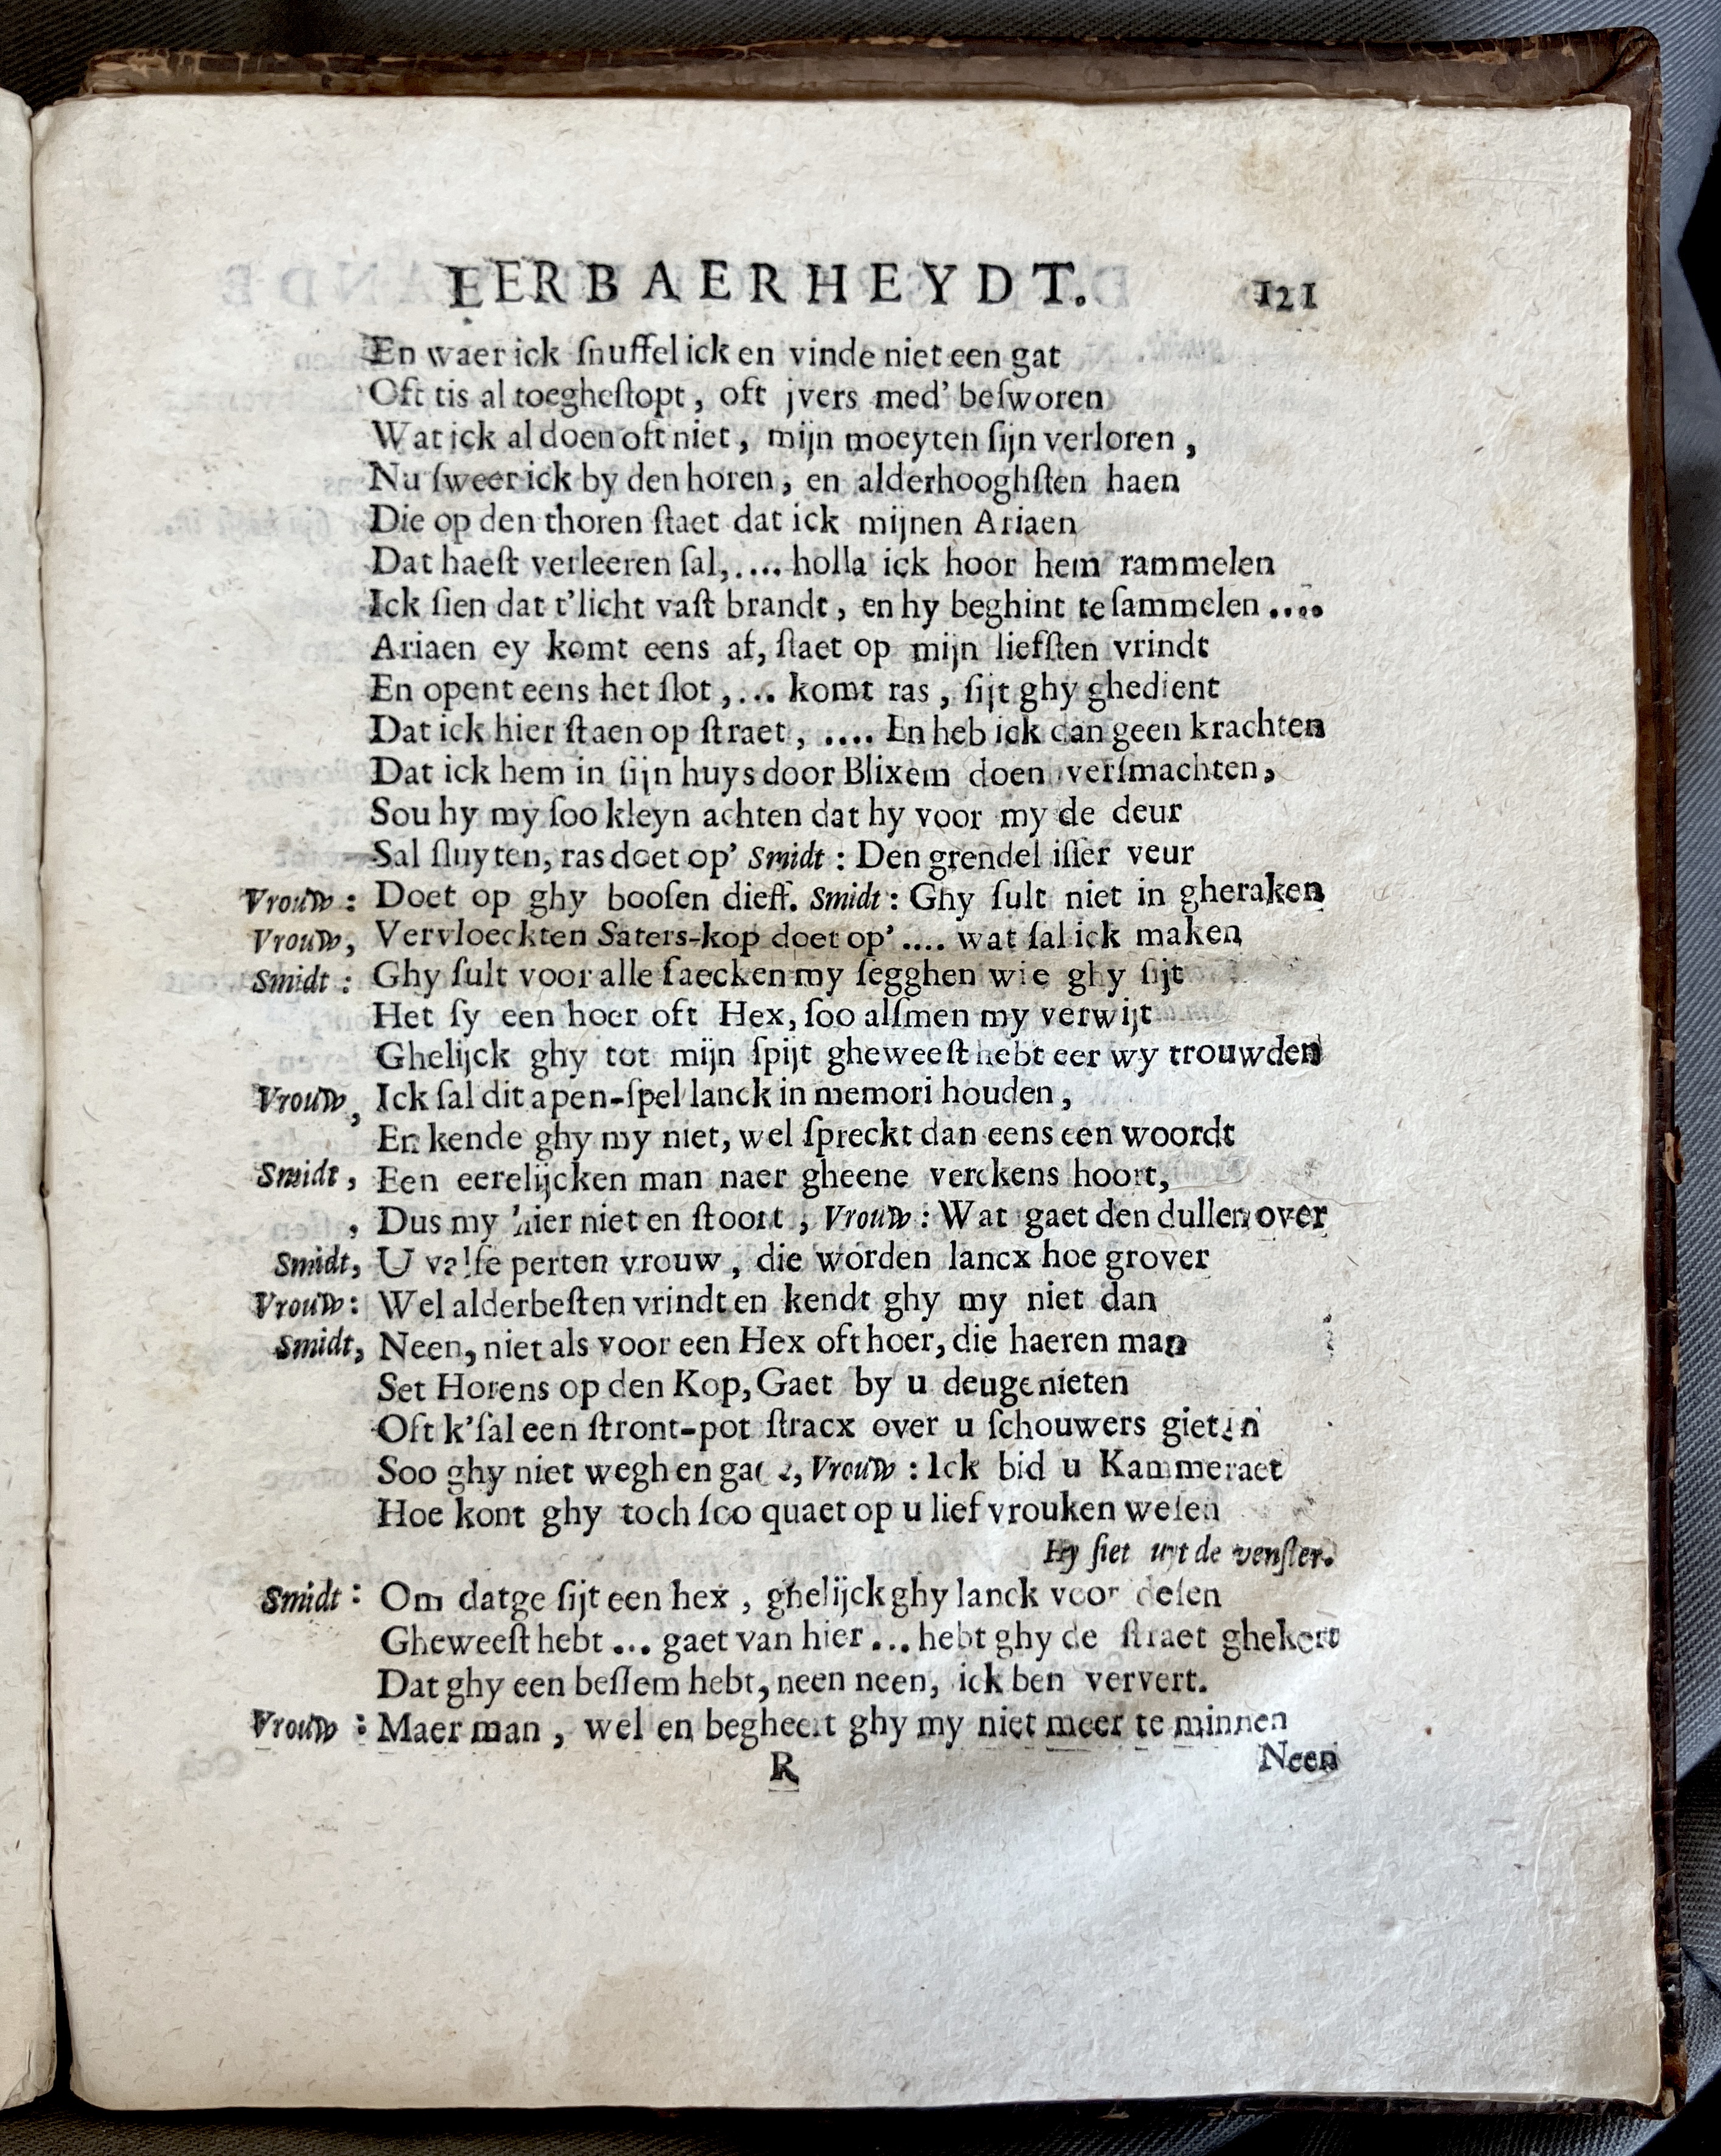 EERBAERHEYDT. 121
En waer ick ſnuffel ick en vinde niet een gat
Oft tis al toegheſtopt, oft jvers med' beſworen
Wat ick al doen oft niet, mijn moeyten ſijn verloren,
Nu ſweer ick by den horen, en alderhooghſten haen
Die op den thoren ſtaet dat ick mijnen Ariaen
Dat haeſt verleeren ſal,.... holla ick hoor hem rammelen
Ick ſien dat t'licht vaſt brandt, en hy beghint te ſammelen ....
Ariaen ey komt eens af, ſtaet op mijn liefſten vrindt
En opent eens het ſlot,... komt ras, ſijt ghy ghedient
Dat ick hier ſtaen op ſtraet, .... En heb ick dan geen krachten
Dat ick hem in ſijn huys door Blixem doen verſmachten,
Sou hy my ſoo kleyn achten dat hy voor my de deur
Sal ſluyten, ras doet op' Smidt: Den grendel iſſer veur
Vrouw: Doet op ghy booſen dieff. Smidt: Ghy ſult niet in gheraken
Vrouw, Vervloeckten Saters-kop doet op'.... wat ſal ick maken
Smidt: Ghy ſult voor alle ſaecken my ſegghen wie ghy ſijt
Het ſy een hoer oft Hex, ſoo alſmen my verwijt
Ghelijck ghy tot mijn ſpijt gheweeſt hebt eer wy trouwden
Vrouw, Ick ſal dit apen-ſpel lanck in memori houden,
En kende ghy my niet, wel ſpreckt dan eens een woordt
Smidt, Een eerelijcken man naer gheene verckens hoort,
, Dus my hier niet en ſtoort, Vrouw: Wat gaet den dullen over
Smidt, U valſe perten vrouw, die worden lancx hoe grover
Vrouw: Wel alderbeſten vrindt en kendt ghy my niet dan
Smidt, Neen, niet als voor een Hex oft hoer, die haeren man
Set Horens op den Kop, Gaet by u deugenieten
Oft k'ſal een ſtront-pot ſtracx over u ſchouwers gieten
Soo ghy niet wegh en gaet, Vrouw: Ick bid u Kammeraet
Hoe kont ghy toch ſoo quaet op u lief vrouken weſen
Hy ſiet uyt de venſter.
Smidt: Om datge ſijt een hex, ghelijck ghy lanck voor deſen
Gheweeſt hebt ... gaet van hier ... hebt ghy de ſtraet ghekert
Dat ghy een beſſem hebt, neen neen, ick ben ververt.
Vrouw: Maer man, wel en begheert ghy my niet meer te minnen
R Neen